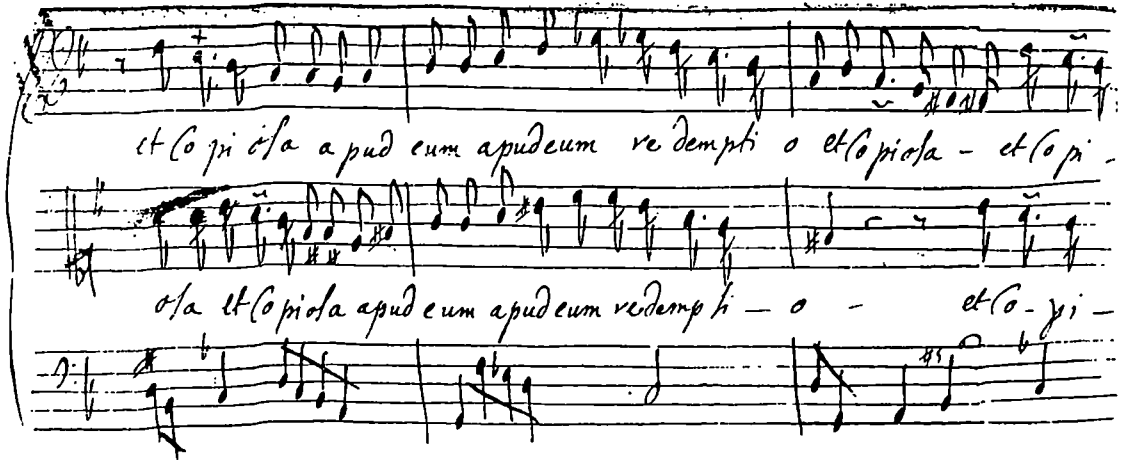 et Copi osa apud eum apud eum redempti o et Copiosa - et Copi -
osa et Copiosa apud eum apud eum redempti — o - et Co - pi —